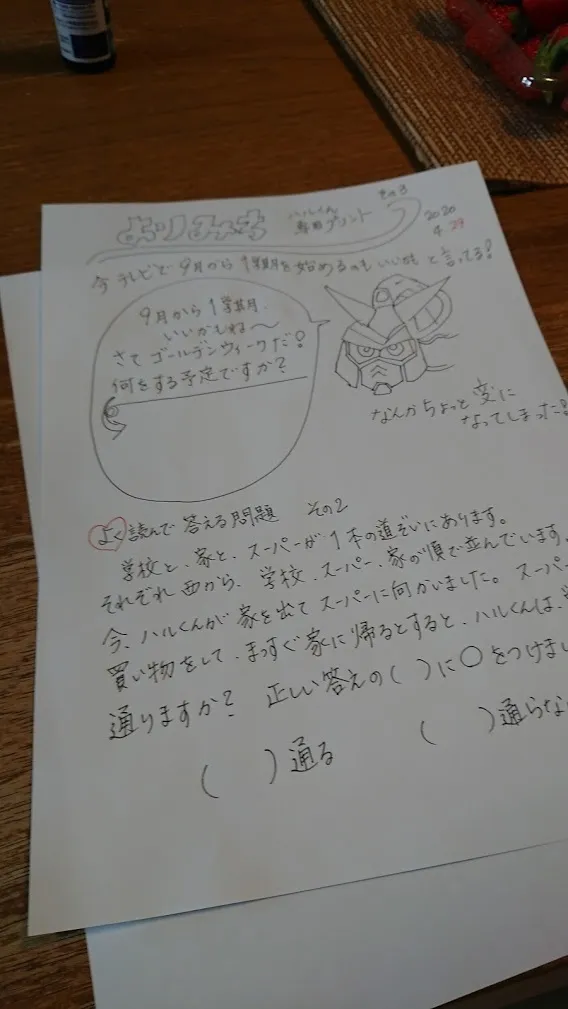 よりみち
ハルくん
専用プリント
その3
2020
4.29
今テレビで9月から1学期を始めるのもいいかも と言ってる!
9月から1学期.
いいかもね〜
さてゴールデンウィークだ!
何をする予定ですか?
なんかちょっと変に
なってしまった
よく読んで答える問題 その2
学校と、家と、スーパーが1本の道ぞいにあります。
それぞれ西から、学校、スーパー、家の順で並んでいます。
今、ハルくんが家を出てスーパーに向かいました。スーパー
買い物をして、まっすぐ家に帰るとすると、ハルくんは、
通りますか? 正しい答えの( )に○をつけまし
( )通る ( )通らな